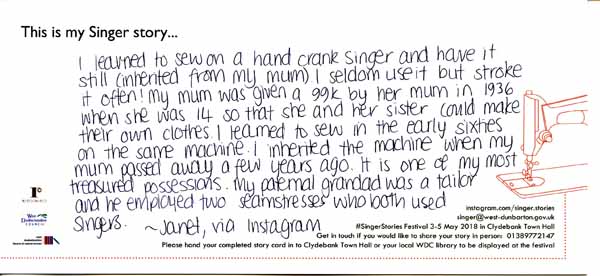 This is my Singer story...
I learned to sew on a hand crank singer and have it
still (inherited from my mum) I seldom use it but stroke
it often! my mum was given a 99k by her mum in 1936
when she was 14 so that she and her sister could make
their own clothes. I learned to sew in the early sixties
on the same machine. I inherited the machine when my
mum passed away a few years ago. It is one of my most
treasured possessions. My paternal grandad was a tailor
and he employed two seamstresses who both used
singers. ~Janet, via Instagram
instagram.com/singer.stories
singer@west-dunbarton.gov.uk
#SingerStories Festival 3-5 May 2018 in Clydebank Town Hall
Get in touch if you would like to share your story in person: 01389772147
Please hand your completed story card in to Clydebank Town Hall or your local WDC library to be displayed at the festival
West
Dunbartonshire
COUNCIL